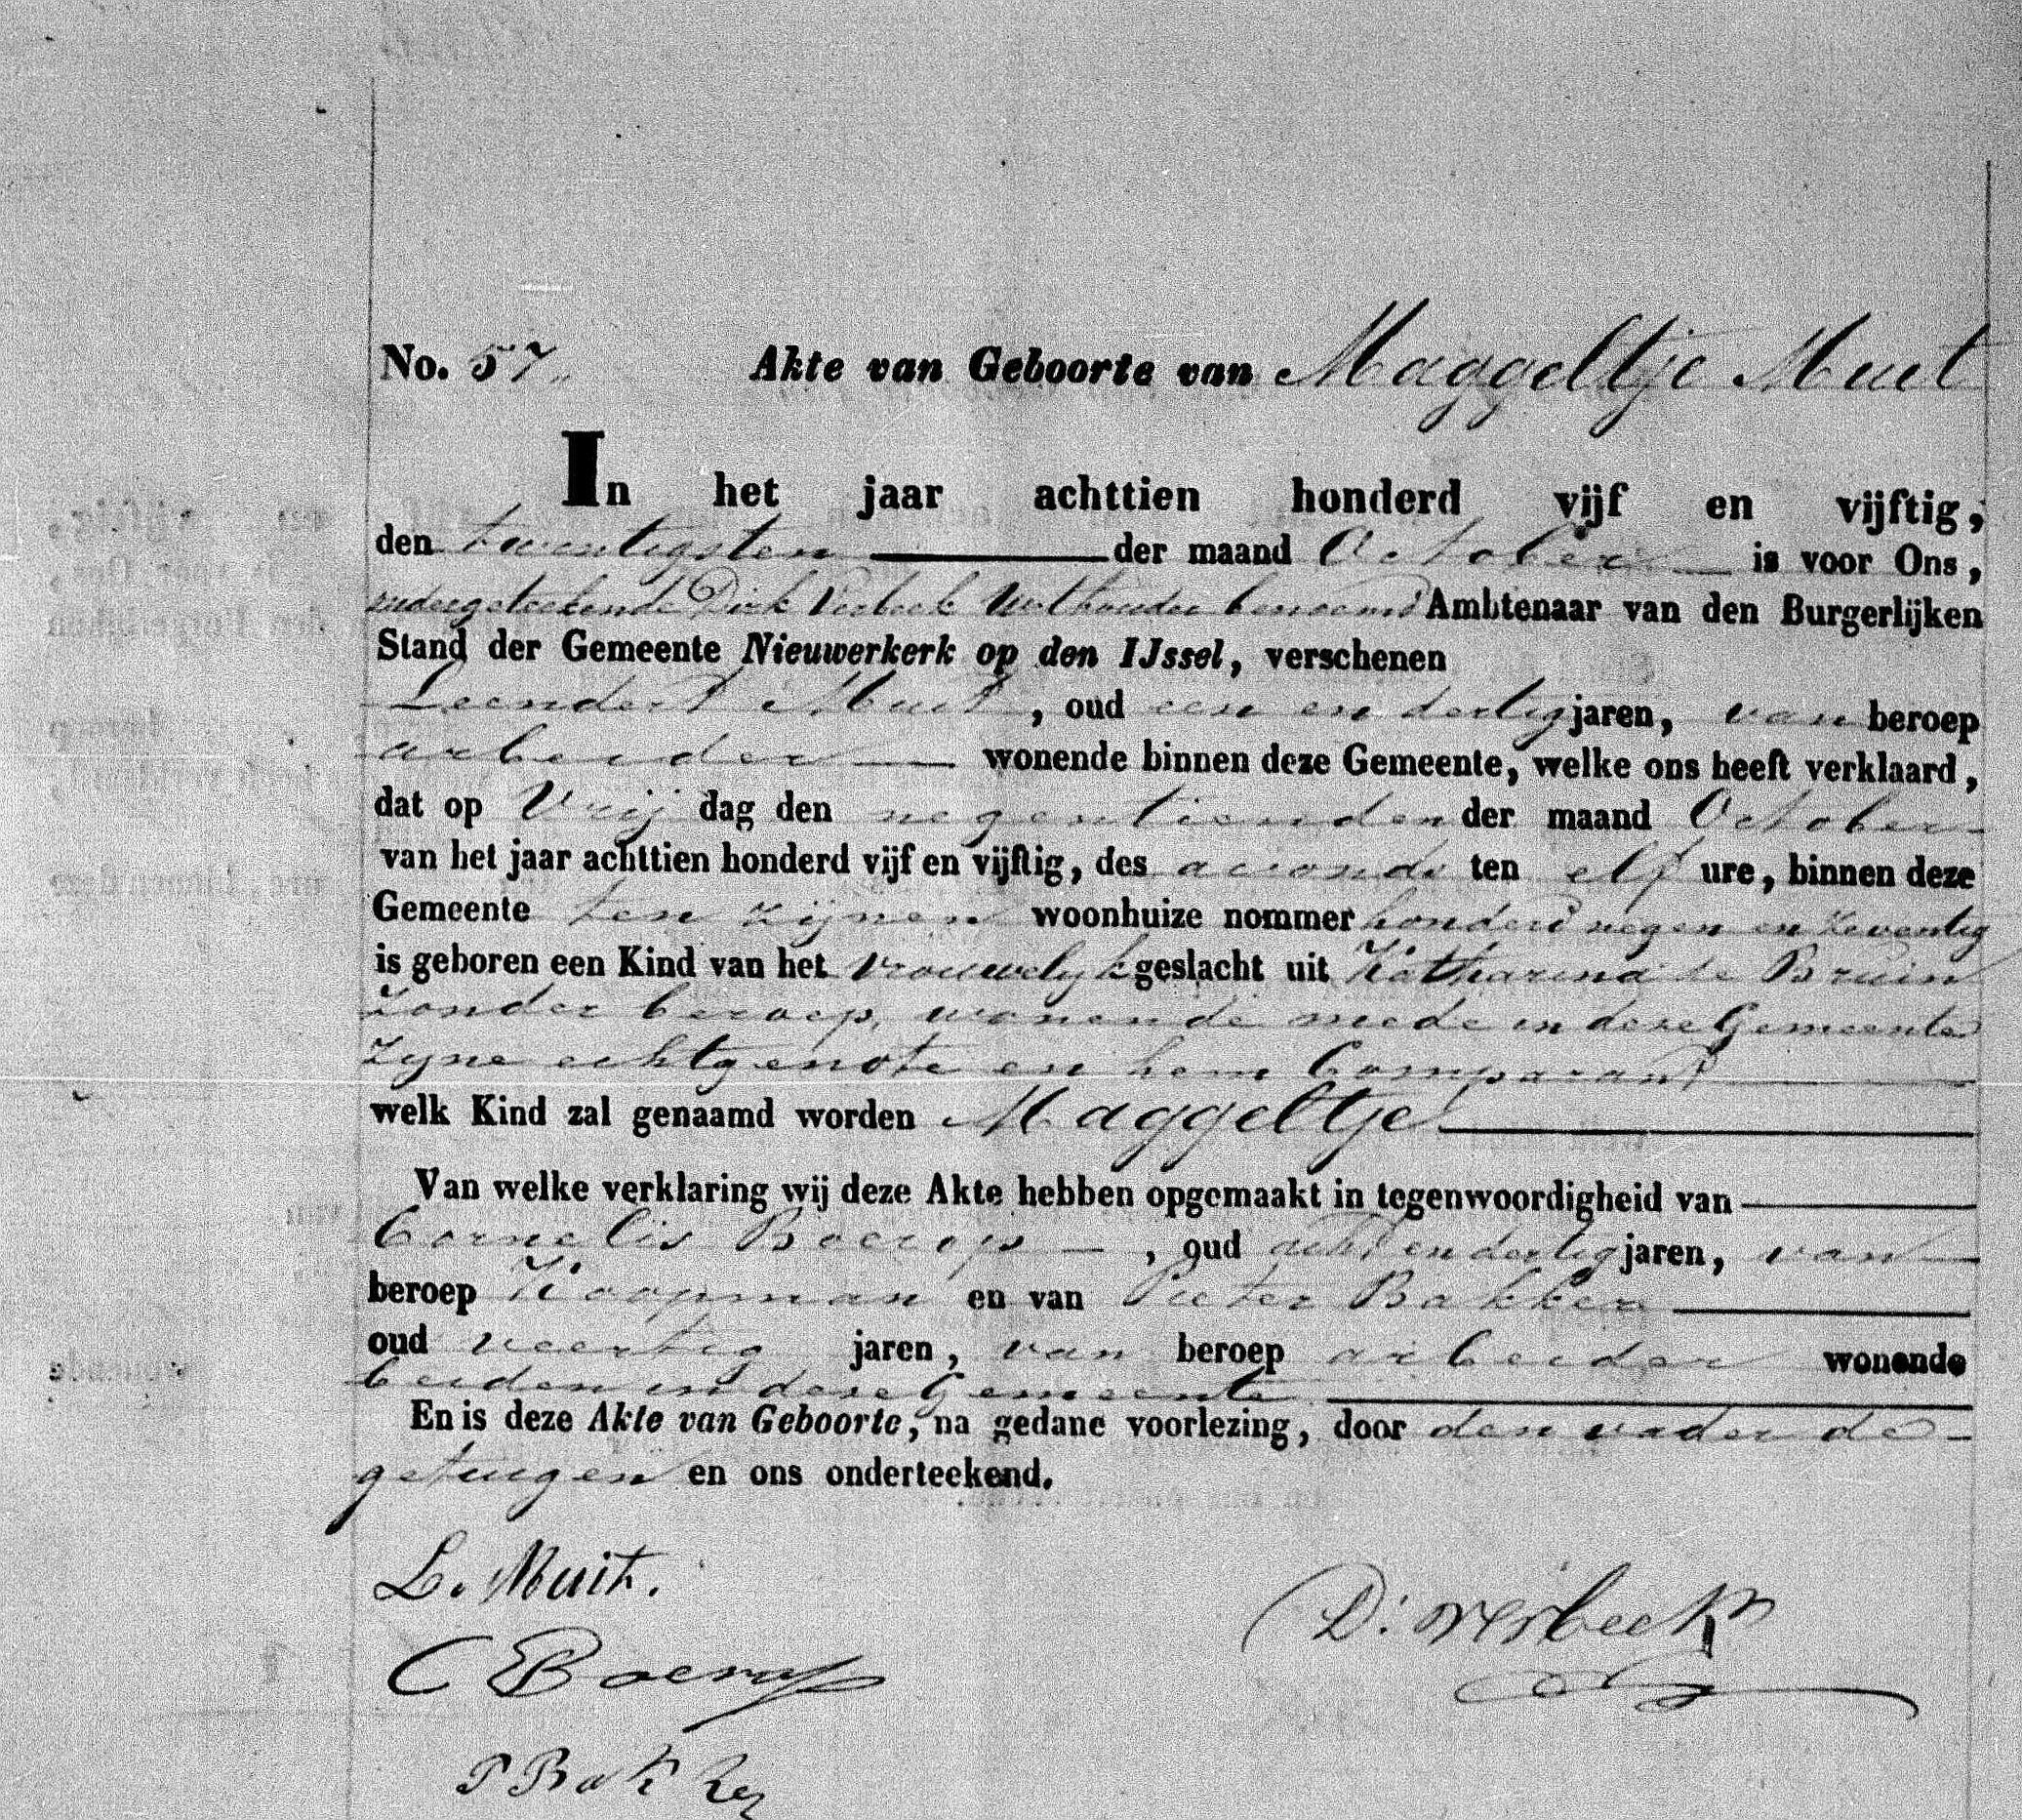 No. 57. Akte van Geboorte van Maggeltje Muit
In het jaar achttien honderd vijf en vijftig,
den twentigsten der maand October is voor Ons,
ondergeteekende Dirk Verbeek Wethouder benoemd Ambtenaar van den Burgerlijken
Stand der Gemeente Nieuwerkerk op den IJssel, verschenen
Leendert Muit, oud een en dertig jaren, van beroep
arbeider wonende binnen deze Gemeente, welke ons heeft verklaard,
dat op Vrij dag den negentienden der maand October
van het jaar achttien honderd vijf en vijftig, des avonds ten elf ure, binnen deze
Gemeente ten zijnen woonhuize nommer honderd negen en zeventig
is geboren een Kind van het vrouwelijk geslacht uit Katharina de Bruin
zonder beroep, wonende mede in deze Gemeente
zijne echtgenote en hem Comparant
welk Kind zal genaamd worden Maggeltje
Van welke verklaring wij deze Akte hebben opgemaakt in tegenwoordigheid van
Cornelis Boerop, oud acht en dertig jaren, van
beroep Koopman en van Pieter Bakker
oud veertig jaren, van beroep arbeider wonende
beiden in deze Gemeente
En is deze Akte van Geboorte, na gedane voorlezing, door den vader de
getuigen en ons onderteekend.
L. Muit.
D. Verbeek
C Boerop
P Bakker